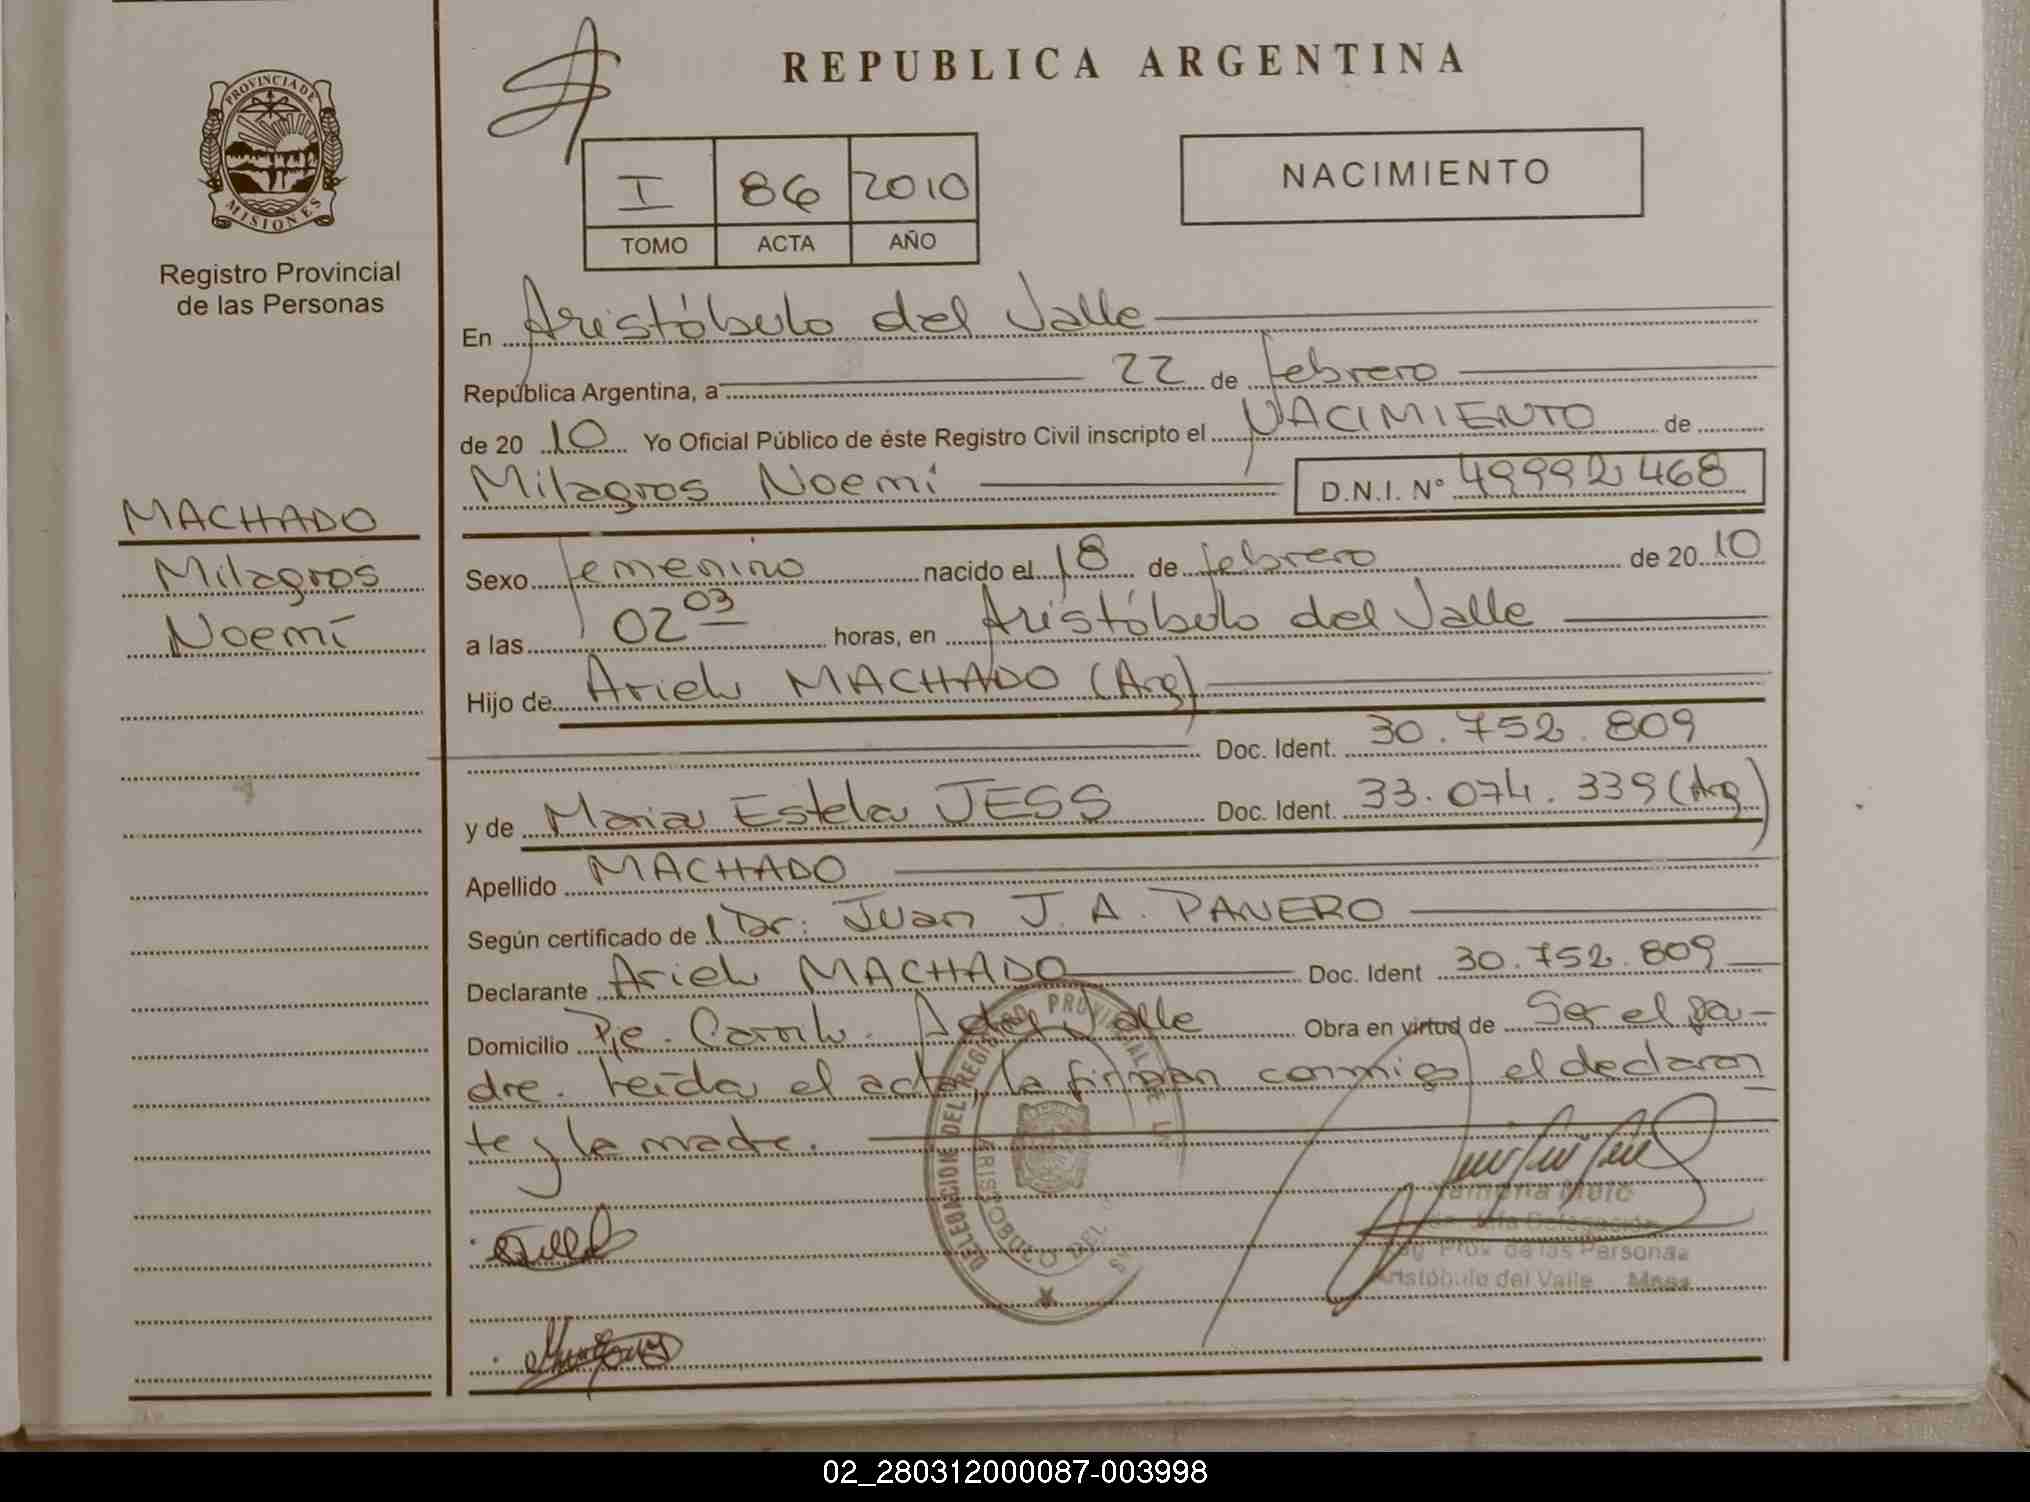 REPUBLICA ARGENTINA
PROVINCIA DE
MISIONES
Registro Provincial
de las Personas
I 86 2010
TOMO ACTA AÑO
NACIMIENTO
En Aristóbulo del Valle
República Argentina, a 22 de febrero
de 20 10 Yo Oficial Público de éste Registro Civil inscripto el NACIMIENTO de
Milagros Noemí D.N.I. N° 49992468
MACHADO
Milagros
Noemí
Sexo femenino nacido el 18 de febrero de 20 10
a las 02 03 horas, en Aristóbulo del Valle
Hijo de Ariel MACHADO (Arg)
Doc. Ident. 30.752.809
y de Maria Estela JESS Doc. Ident. 33.074.339 (Arg)
Apellido MACHADO
Según certificado de Dr: Juan J. A. PANERO
Declarante Ariel MACHADO Doc. Ident 30.752.809
Domicilio A del Valle Obra en virtud de Ser el pa-
dre. Leída el acta, la firman conmigo el declaran
te y la madre.
DELEGACION DEL REGISTRO PROVINCIAL DE
ARISTOBULO DEL
Delegación
Prov. de las Personas
Aristóbulo del Valle Mnes
02_280312000087-003998